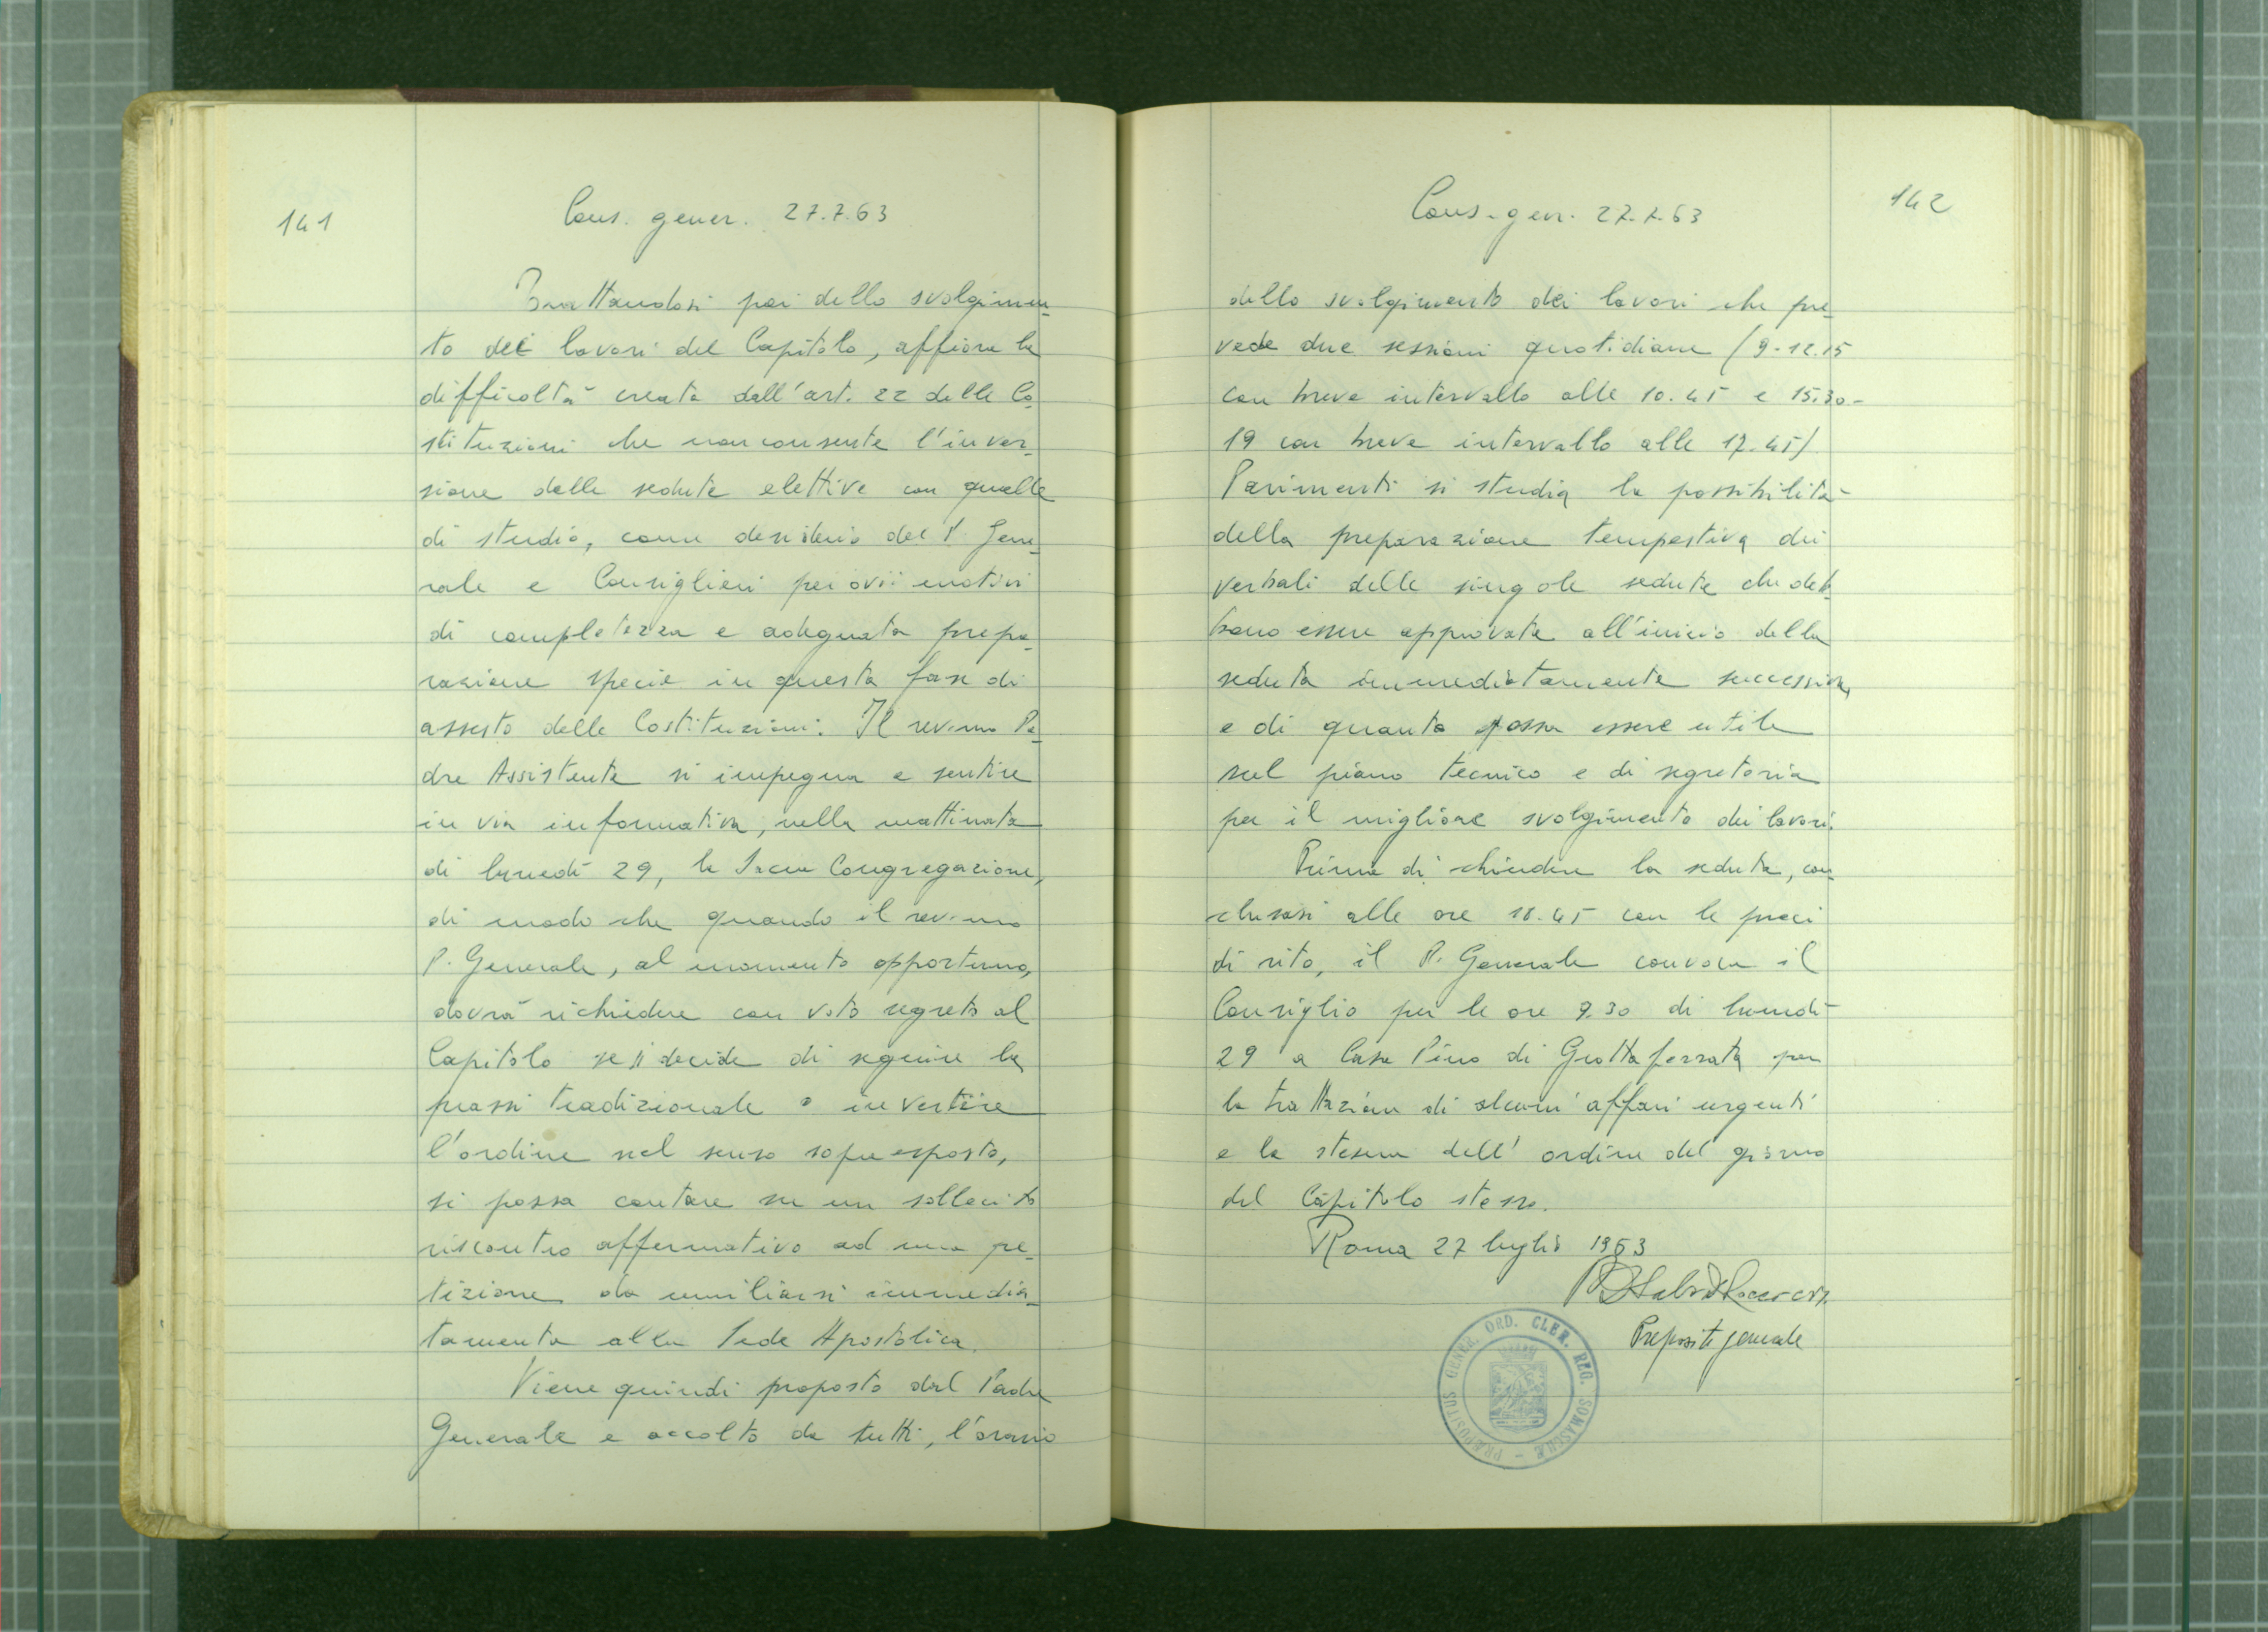 141
Cons. gener. 27.7.63
Trattandosi poi dello svolgimen-
to dei lavori del Capitolo, affiora la
difficoltà creata dall'art. 22 delle Co-
stituzioni che non consente l'inver-
sione delle sedute elettive con quelle
di studio, come desiderio del P. Gene-
rale e Consiglieri per ovii motivi
di completezza e adeguata prepa-
razione specie in questa fase di
assesto delle Costituzioni. Il rev.mo Pa-
dre Assistente si impegna a sentire
in via informativa, nella mattinata
di lunedì 29, la Sacra Congregazione,
di modo che quando il rev.mo
P. Generale, al momento opportuno,
dovrà richiedere con voto segreto al
Capitolo se si decide di seguire la
prassi tradizionale o invertire
l'ordine nel senso sopra esposto,
si possa contare su un sollecito
riscontro affermativo ad una pe-
tizione da umiliarsi immedia-
tamente alla Sede Apostolica.
Viene quindi proposto dal Padre
Generale e accolto da tutti, l'orario
142
Cons. gen. 27.7.63
dello svolgimento dei lavori che pre-
vede due sessioni quotidiane (9-12.15
con breve intervallo alle 10.45 e 15.30-
19 con breve intervallo alle 17.45)
Parimenti si studia la possibilità
della preparazione tempestiva dei
verbali delle singole sedute che deb-
bono essere approvate all'inizio della
seduta immediatamente successiva,
e di quanto possa essere utile
sul piano tecnico e di segreteria
per il migliore svolgimento dei lavori.
Prima di chiudere la seduta, con-
clusasi alle ore 18.45 con le preci
di rito, il P. Generale convoca il
Consiglio per le ore 9.30 di lunedì
29 a Casa Pino di Grottaferrata per
la trattazione di alcuni affari urgenti
e la stesura dell'ordine del giorno
del Capitolo stesso.
Roma 27 luglio 1963
Preposito generale
PRÆPOSITUS GENER. ORD. CLER. REG. SOMASCHÆ